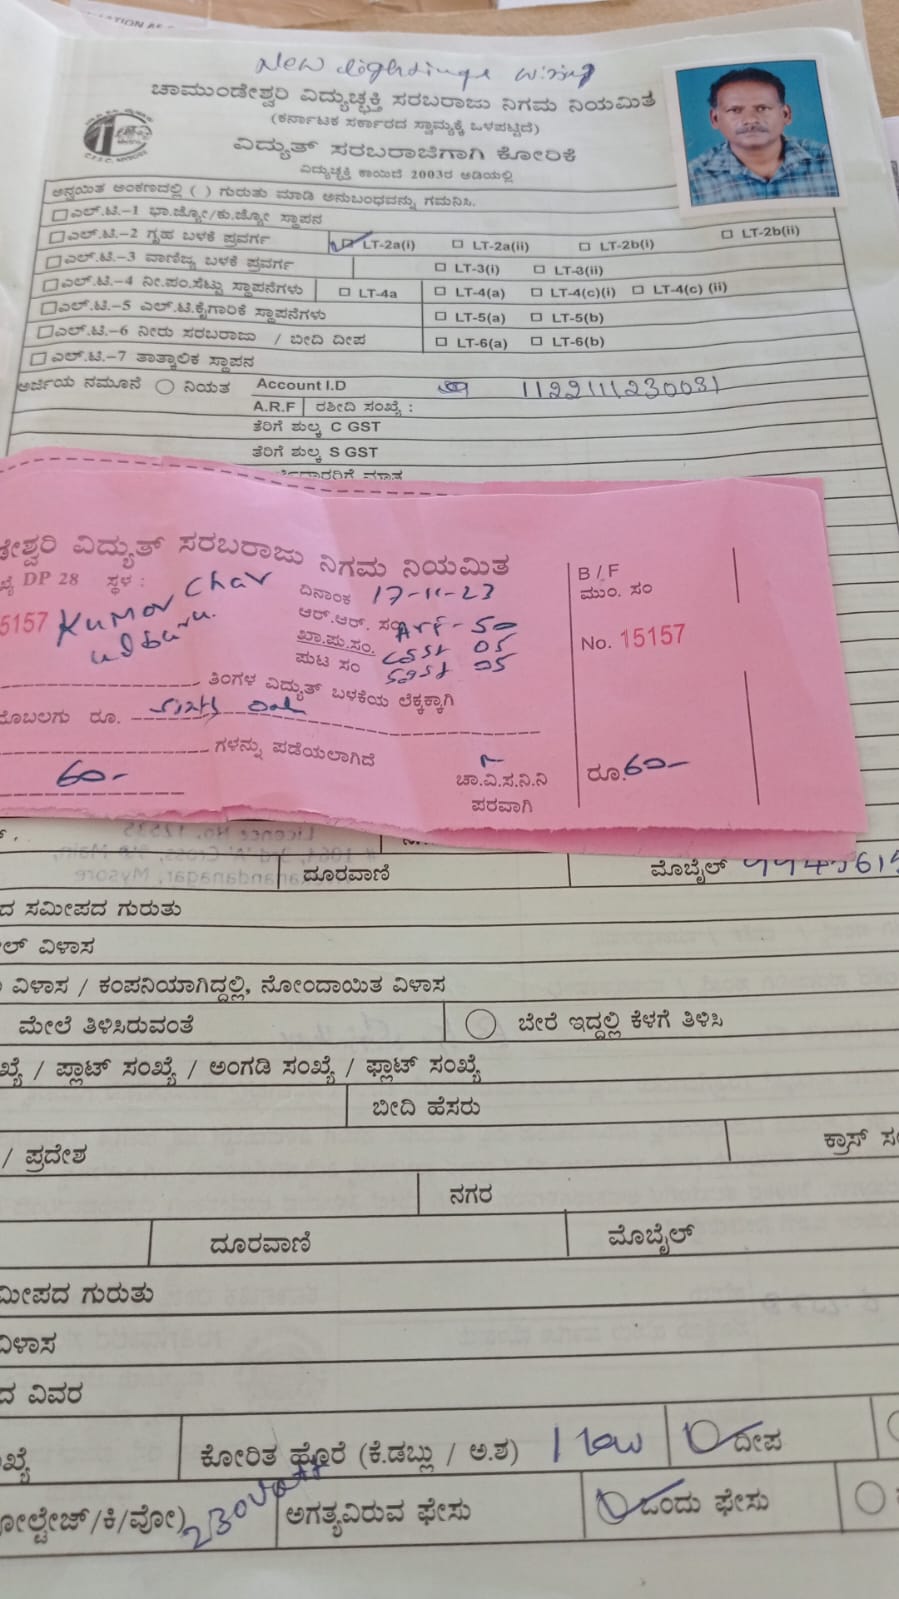 New lightings wiring
ಚಾಮುಂಡೇಶ್ವರಿ ವಿದ್ಯುಚ್ಛಕ್ತಿ ಸರಬರಾಜು ನಿಗಮ ನಿಯಮಿತ
(ಕರ್ನಾಟಕ ಸರ್ಕಾರದ ಸ್ವಾಮ್ಯಕ್ಕೆ ಒಳಪಟ್ಟಿದೆ)
ವಿದ್ಯುತ್ ಸರಬರಾಜಿಗಾಗಿ ಕೋರಿಕೆ
ವಿದ್ಯುಚ್ಛಕ್ತಿ ಕಾಯಿದೆ 2003ರ ಅಡಿಯಲ್ಲಿ
ಅನ್ವಯಿತ ಅಂಕಣದಲ್ಲಿ ( ) ಗುರುತು ಮಾಡಿ ಅನುಬಂಧವನ್ನು ಗಮನಿಸಿ.
ಎಲ್.ಟಿ.-1 ಭಾ.ಜ್ಯೋ/ಕು.ಜ್ಯೋ ಸ್ಥಾಪನ
ಎಲ್.ಟಿ.-2 ಗೃಹ ಬಳಕೆ ಪ್ರವರ್ಗ LT-2a(i) LT-2a(ii) LT-2b(i) LT-2b(ii)
ಎಲ್.ಟಿ.-3 ವಾಣಿಜ್ಯ ಬಳಕೆ ಪ್ರವರ್ಗ LT-3(i) LT-3(ii)
ಎಲ್.ಟಿ.-4 ನೀ.ಪಂ.ಸೆಟ್ಟು ಸ್ಥಾಪನೆಗಳು LT-4a LT-4(a) LT-4(c)(i) LT-4(c) (ii)
ಎಲ್.ಟಿ.-5 ಎಲ್.ಟಿ.ಕೈಗಾರಿಕೆ ಸ್ಥಾಪನೆಗಳು LT-5(a) LT-5(b)
ಎಲ್.ಟಿ.-6 ನೀರು ಸರಬರಾಜು / ಬೀದಿ ದೀಪ LT-6(a) LT-6(b)
ಎಲ್.ಟಿ.-7 ತಾತ್ಕಾಲಿಕ ಸ್ಥಾಪನ
ಅರ್ಜಿಯ ನಮೂನೆ ನಿಯತ Account I.D
A.R.F ರಶೀದಿ ಸಂಖ್ಯೆ :
ತೆರಿಗೆ ಶುಲ್ಕ C GST
ತೆರಿಗೆ ಶುಲ್ಕ S GST
ಡೇಶ್ವರಿ ವಿದ್ಯುತ್ ಸರಬರಾಜು ನಿಗಮ ನಿಯಮಿತ
DP 28 ಸ್ಥಳ :
ದಿನಾಂಕ 17-11-23
5157 Kumar Char
ಆರ್.ಆರ್. ಸಂ. Arf-50
udburu.
ಖಾ.ಪು.ಸಂ. CGST 05
ಪುಟ ಸಂ SGST 05
ತಿಂಗಳ ವಿದ್ಯುತ್ ಬಳಕೆಯ ಲೆಕ್ಕಕ್ಕಾಗಿ
ಮೊಬಲಗು ರೂ. sixty
ಗಳನ್ನು ಪಡೆಯಲಾಗಿದೆ
60-
ಚಾ.ವಿ.ಸ.ನಿ.ನಿ
ಪರವಾಗಿ
B / F
ಮುಂ. ಸಂ
No. 15157
ರೂ.60-
ದೂರವಾಣಿ ಮೊಬೈಲ್
ದ ಸಮೀಪದ ಗುರುತು
ಲ್ ವಿಳಾಸ
ವಿಳಾಸ / ಕಂಪನಿಯಾಗಿದ್ದಲ್ಲಿ, ನೋಂದಾಯಿತ ವಿಳಾಸ
ಮೇಲೆ ತಿಳಿಸಿರುವಂತೆ ಬೇರೆ ಇದ್ದಲ್ಲಿ ಕೆಳಗೆ ತಿಳಿಸಿ
ಖ್ಯೆ / ಪ್ಲಾಟ್ ಸಂಖ್ಯೆ / ಅಂಗಡಿ ಸಂಖ್ಯೆ / ಫ್ಲಾಟ್ ಸಂಖ್ಯೆ
ಬೀದಿ ಹೆಸರು
/ ಪ್ರದೇಶ ಕ್ರಾಸ್ ಸಂ
ನಗರ
ದೂರವಾಣಿ ಮೊಬೈಲ್
ಮೀಪದ ಗುರುತು
ವಿಳಾಸ
ದ ವಿವರ
ಖ್ಯೆ ಕೋರಿತ ಹೊರೆ (ಕೆ.ಡಬ್ಲು / ಅ.ಶ) 1 kw ದೀಪ
ೋಲ್ಟೇಜ್/ಕಿ/ವೋ) 230 Volt ಅಗತ್ಯವಿರುವ ಫೇಸು ಒಂದು ಫೇಸು